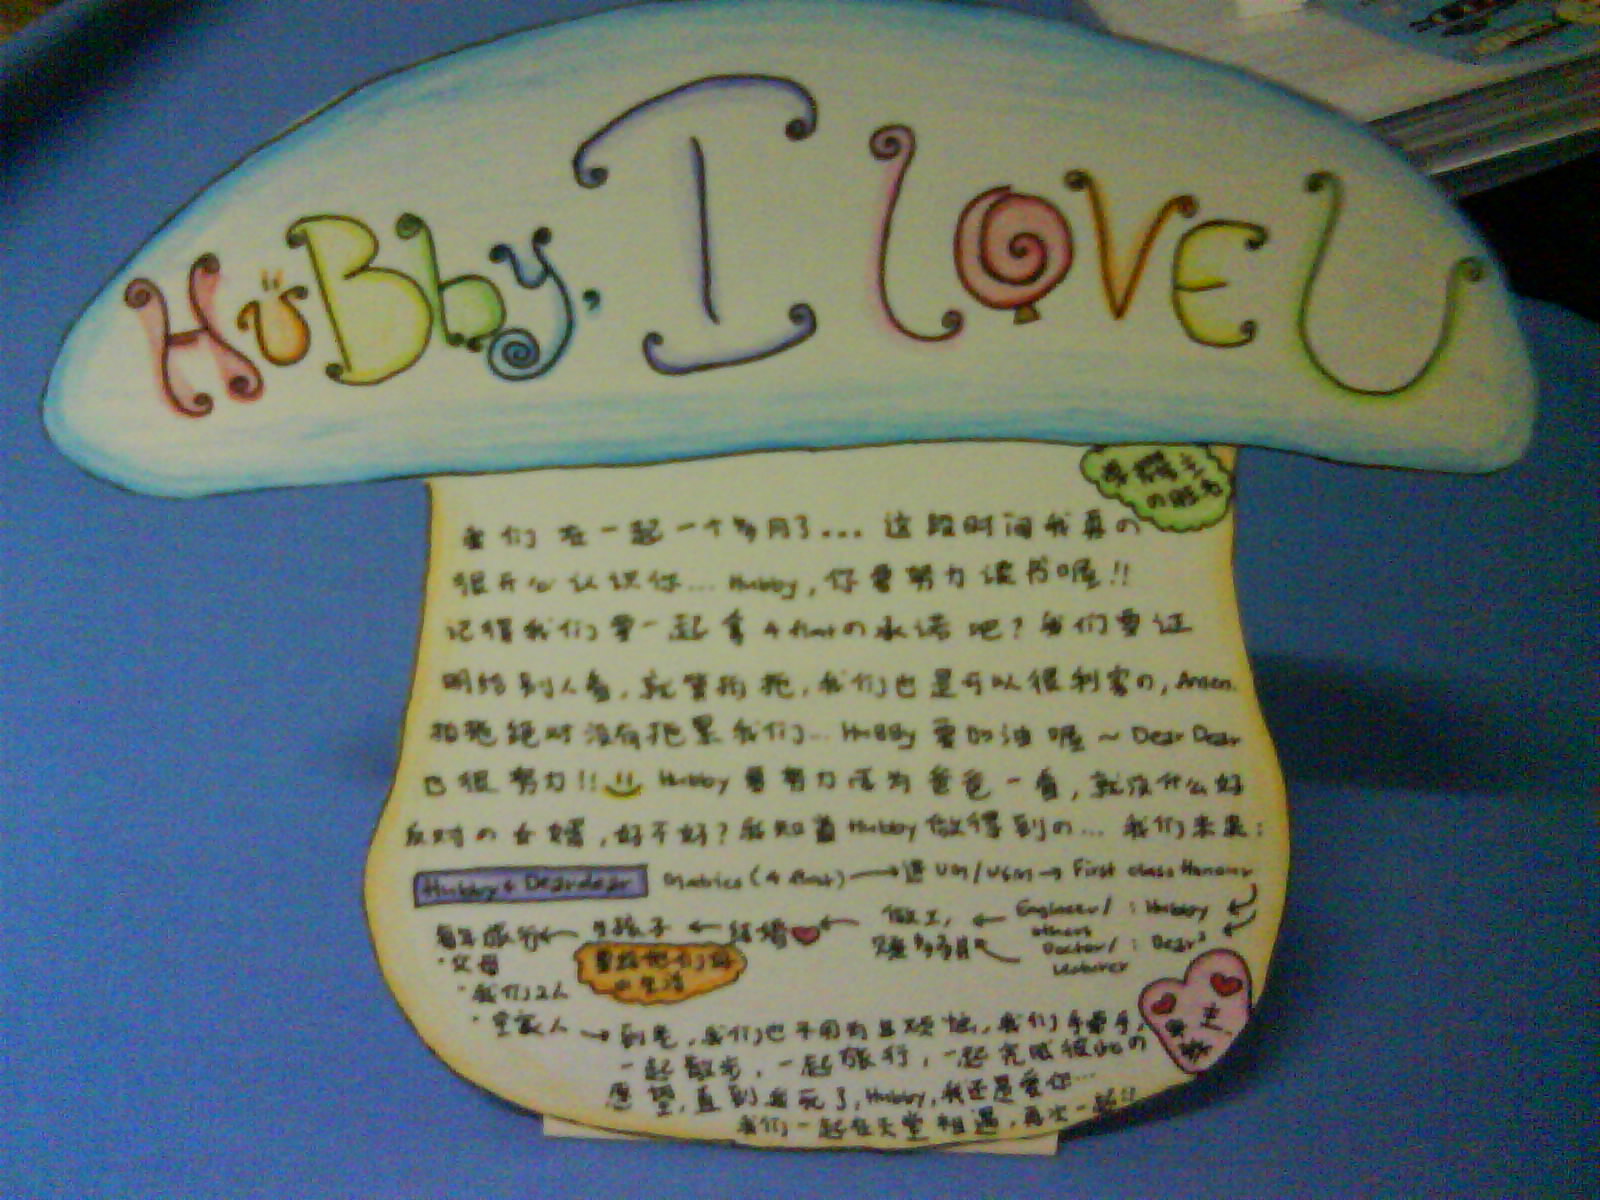 HuBby, I lOVE U
我们在一起一个多月了... 这段时间我真の
很开心认识你... Hubby, 你要努力读书喔!!
记得我们要一起拿 4 flat の承诺吧? 我们要证
明给别人看, 就算拍拖, 我们也是可以很利害の,
拍拖绝对没有拖累我们... HuBBy 要加油喔 ~ Dear Dear
也很努力!! Hubby 要努力成为爸爸一看, 就没什么好
反对の女婿, 好不好? 我知道 Hubby 做得到の... 我们未来:
Hubby & Deardear Matrics (4 flat) → 进 UM/USM → First class Honour
每年旅行 ← 生孩子 ← 结婚 ← 做工, ← Engineer/ : Hubby
others
赚多多钱 Doctor/ : Dear²
Lecturer
要给他们好
の生活
·父母
·我们2人
·全家人 → 到老, 我们也不用为且烦恼, 我们手牵手,
一起散步, 一起旅行, 一起完成彼此の
愿望, 直到我死了, Hubby, 我还是爱你...
我们一起在天堂相遇, 再次一起!!